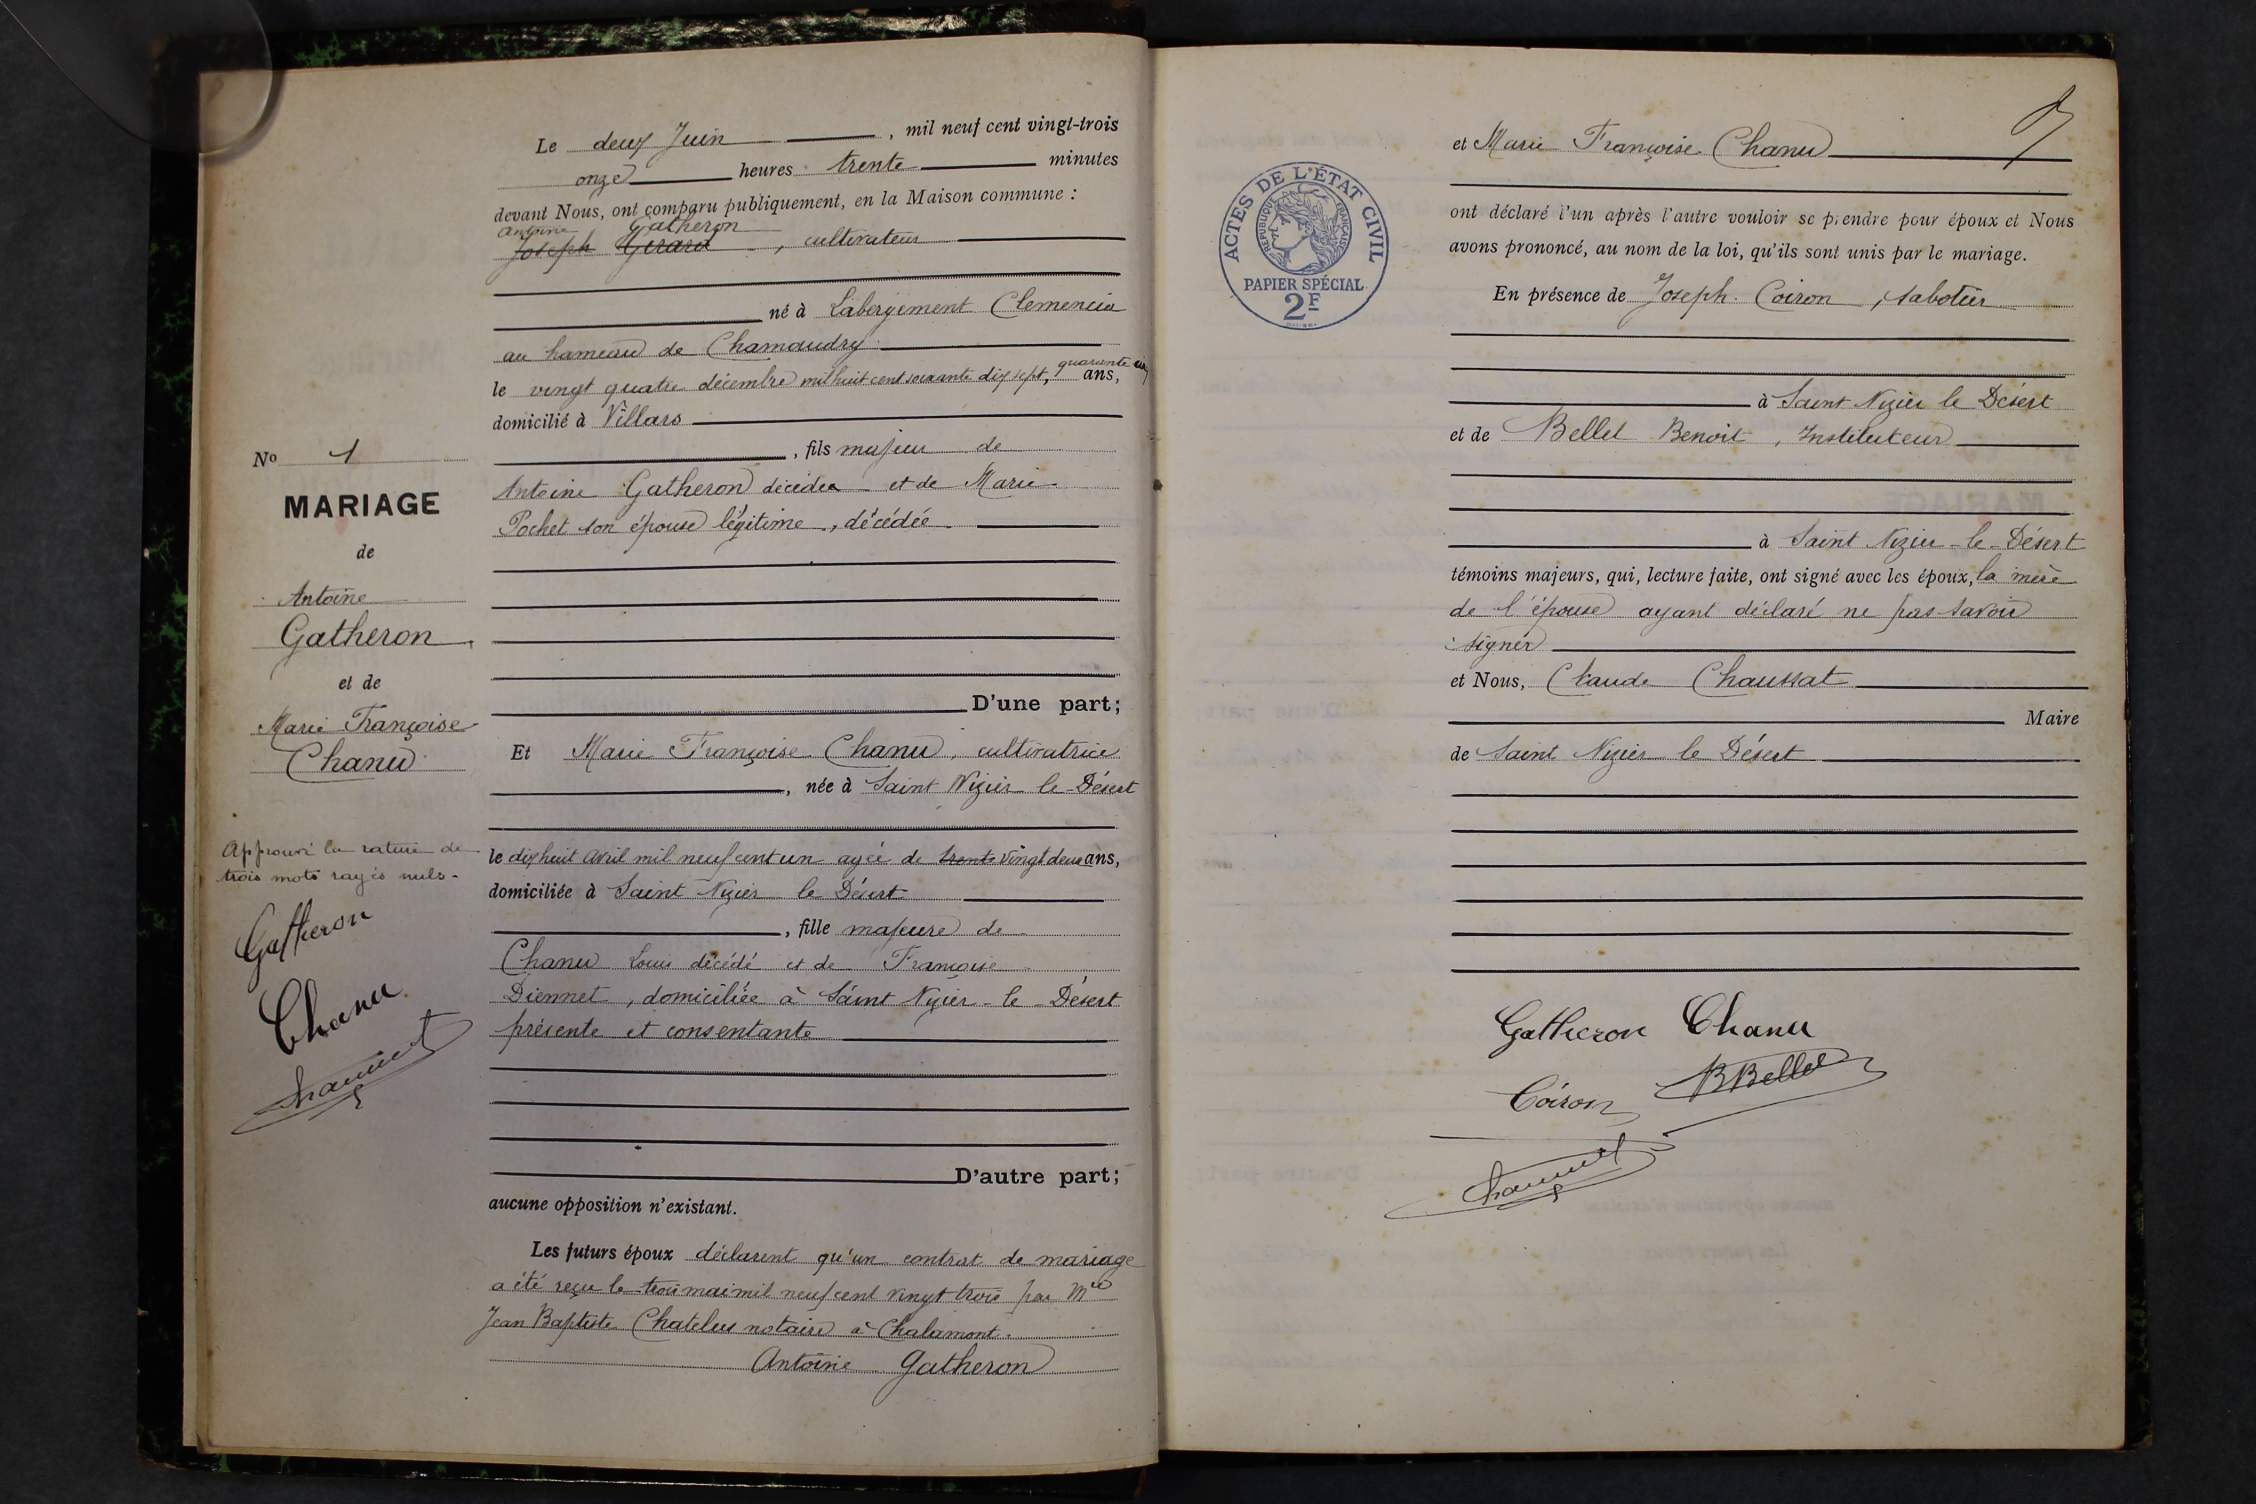 Le deux Juin, mil neuf cent vingt-trois
onze heures trente minutes
devant Nous, ont comparu publiquement, en la Maison commune :
Antoine Gatheron
Joseph Girard, cultivateur
né à Labergement Clemencia
au hameau de Chamaudry
le vingt quatre décembre mil huit cent soixante dix sept, quarante cinq ans,
domicilié à Villars
, fils majeur de
Antoine Gatheron décédé et de Marie
Pochet son épouse légitime, décédée
D'une part;
Et Marie Françoise Chanu, cultivatrice
, née à Saint Nizier le Désert
le dix huit Avril mil neuf cent un agée de trente vingt deux ans,
domiciliée à Saint Nizier le Désert
, fille majeure de
Chanu Louis décédé et de Françoise
Diennet, domiciliée à Saint Nizier-le-Désert
présente et consentante
D'autre part;
aucune opposition n'existant.
Les futurs époux déclarent qu'un contrat de mariage
a été reçu le trois mai mil neuf cent vingt trois par Me
Jean Baptiste Chatelus notaire à Chalamont.
Antoine Gatheron
No 1
MARIAGE
de
Antoine
Gatheron
et de
Marie Françoise
Chanu
Approuvé la rature de
trois mots rayés nuls.
Gatheron
Chanu
et Marie Françoise Chanu
ont déclaré l'un après l'autre vouloir se prendre pour époux et Nous
avons prononcé, au nom de la loi, qu'ils sont unis par le mariage.
En présence de Joseph Coiron, sabotier
à Saint Nizier le Désert
et de Bellet Benoit, Instituteur
à Saint Nizier-le-Désert
témoins majeurs, qui, lecture faite, ont signé avec les époux, la mère
de l'épouse ayant déclaré ne pas savoir
signer
et Nous, Claude Chaussat
Maire
de Saint Nizier le Désert
Gatheron Chanu
Coiron BBellet
ACTES DE L'ÉTAT CIVIL
RÉPUBLIQUE FRANÇAISE
PAPIER SPÉCIAL
2F